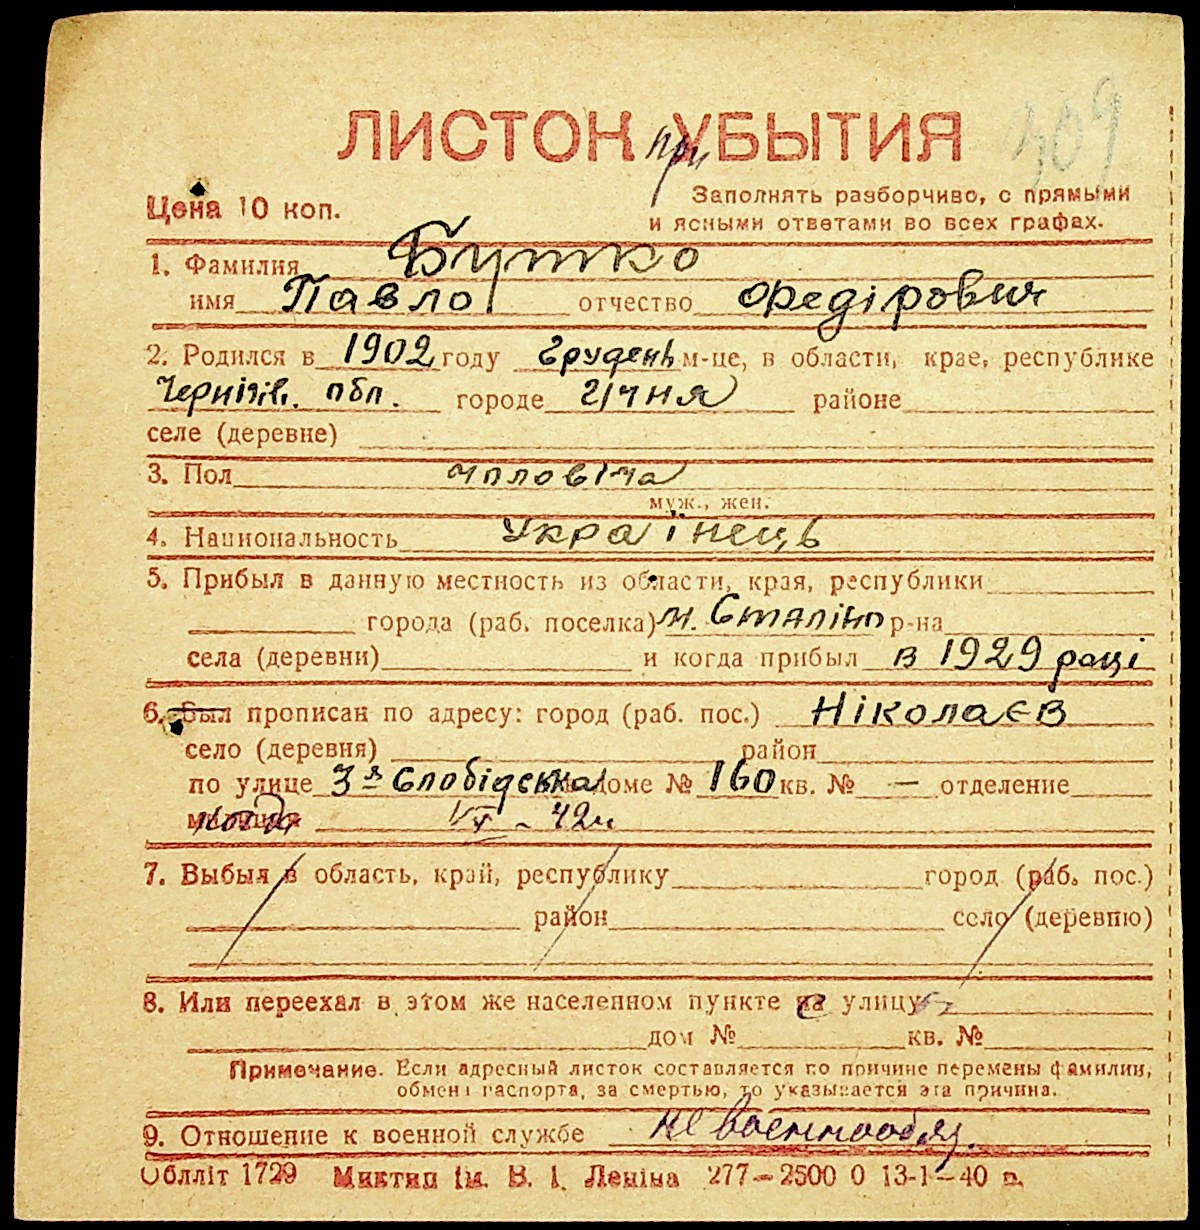 309
ЛИСТОК при УБЫТИЯ
Цена 10 коп.
Заполнять разборчиво, с прямыми
и ясными ответами во всех графах.
1. Фамилия Бутко
имя Павло отчество Федірович
2. Родился в 1902 году Грудень м-це, в области, крае, республике
Чернігів. обл. городе Гічня районе
селе (деревне)
3. Пол чоловіча
муж., жен.
4. Национальность Українець
5. Прибыл в данную местность из области, края, республики
города (раб. поселка) м. Сталіно р-на
села (деревни) и когда прибыл в 1929 році
6. Был прописан по адресу: город (раб. пос.) Ніколаєв
село (деревня) район
по улице 3я Слобідська доме № 160 кв. № — отделение
милиции VI - 42
7. Выбыл в область, край, республику город (раб. пос.)
район село (деревню)
8. Или переехал в этом же населенном пункте на улицу
дом № кв. №
Примечание. Если адресный листок составляется по причине перемены фамилии,
обмена паспорта, за смертью, то указывается эта причина.
9. Отношение к военной службе не военнообяз.
Облліт 1729 Миктип ім. В. І. Леніна 277—2500 0 13-1—40 р.